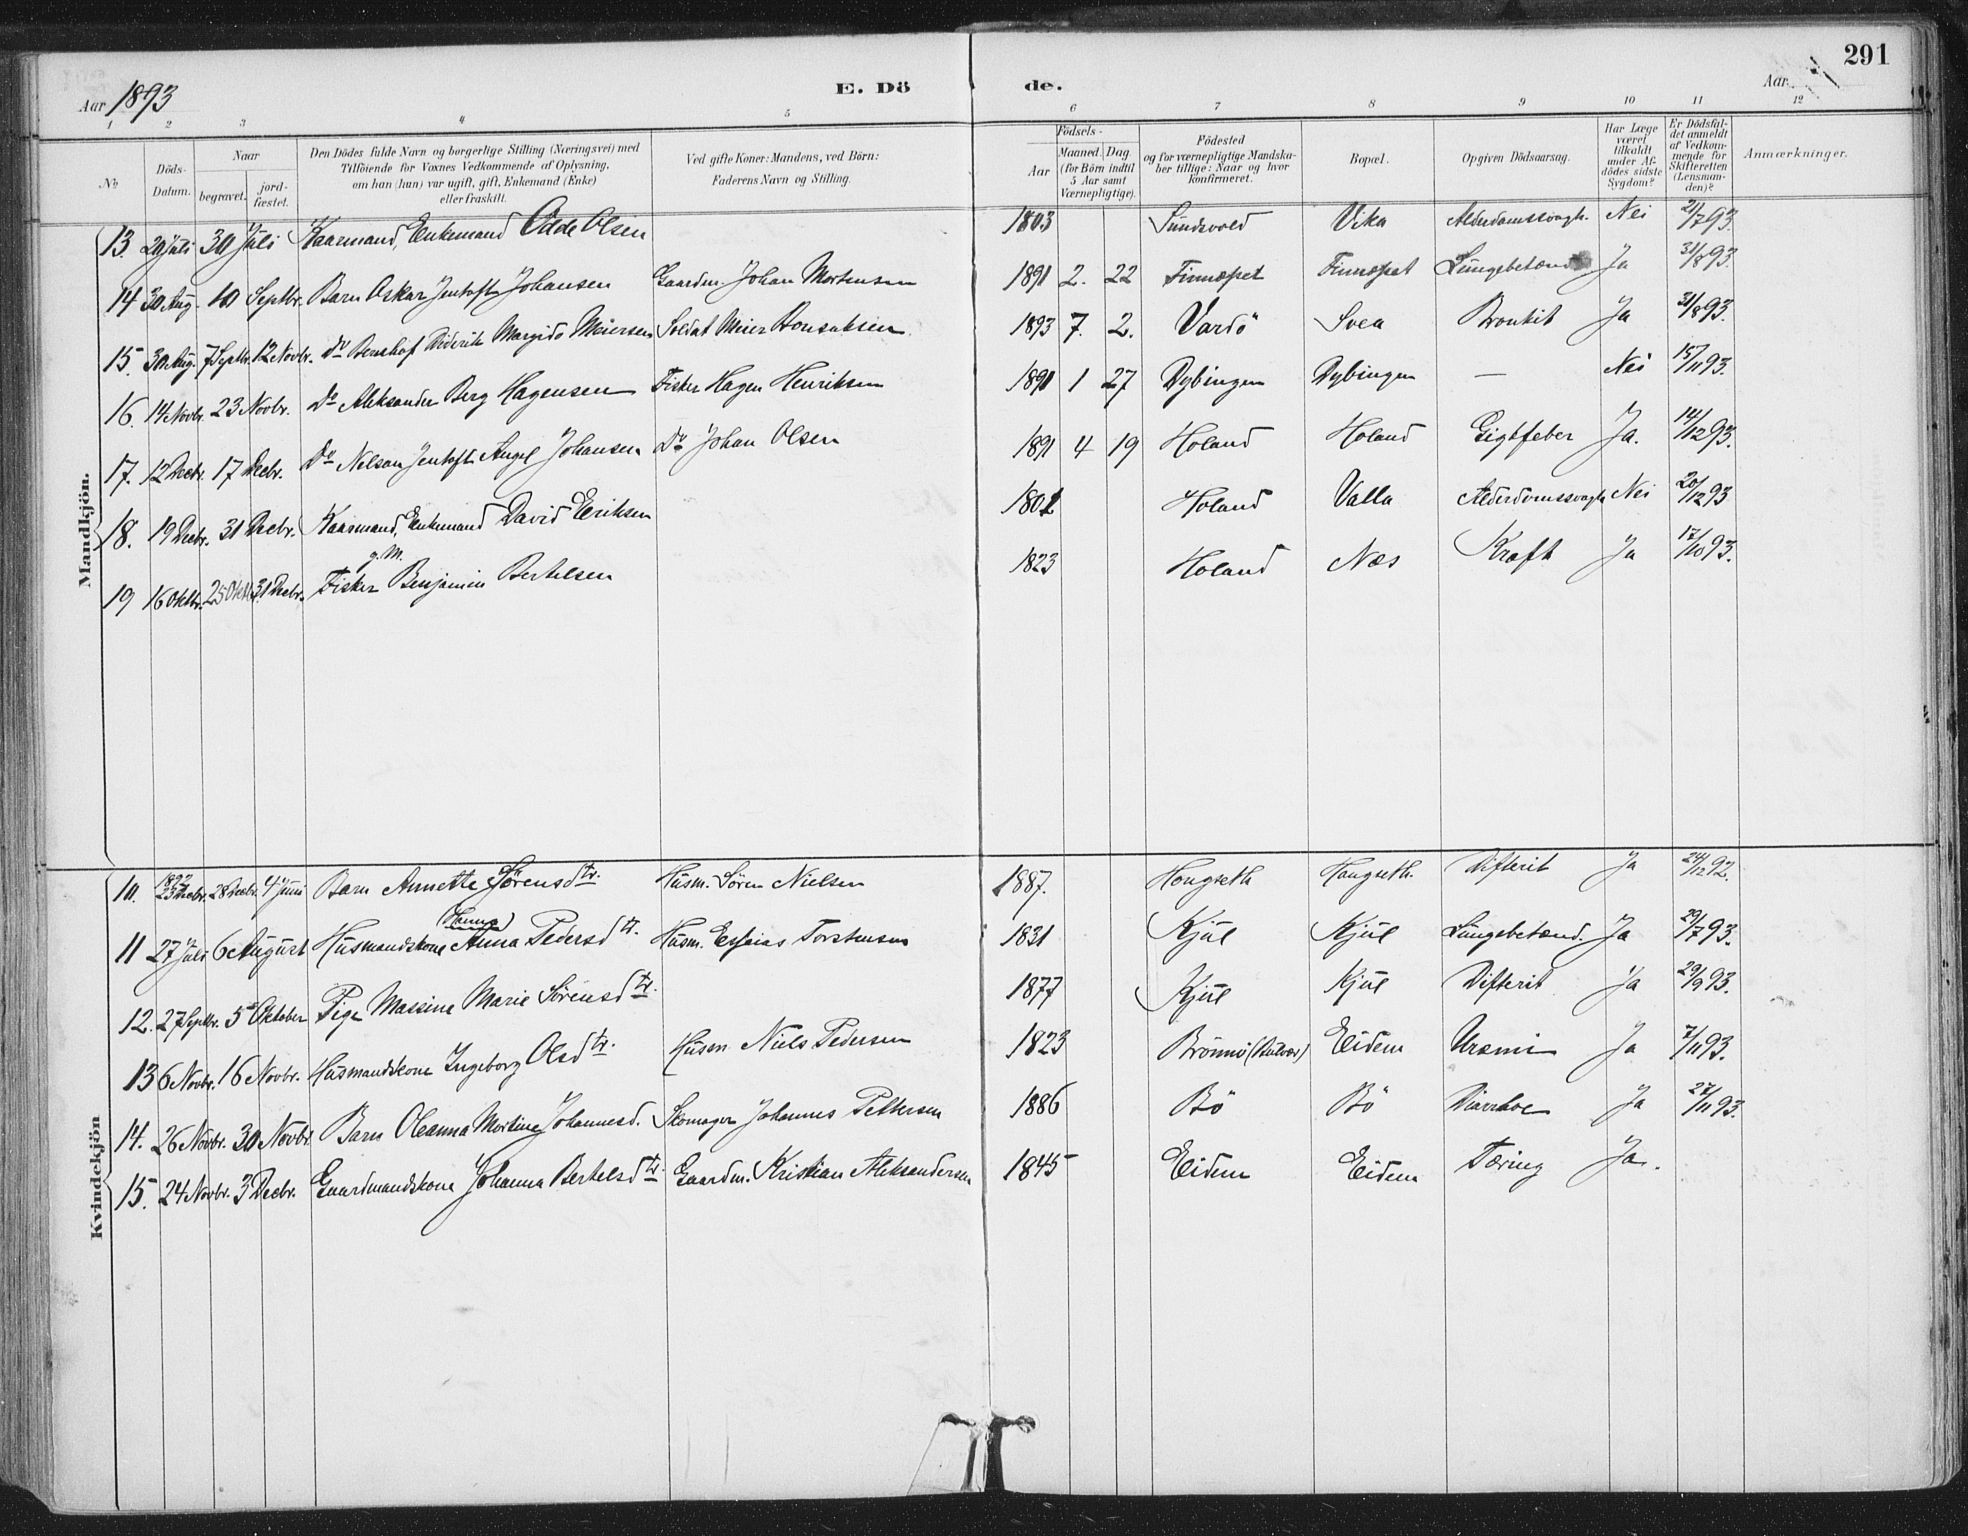 291
Aar 1893
E. Dö de.
Aar.
1 2 3 4 5 6 7 8 9 10 11 12
No
Döds-Datum.
Naar begravet. jord-fæstet.
Den Dödes fulde Navn og borgerlige Stilling (Næringsvei) med Tilföiende for Voxnes Vedkommende af Oplysning, om han (hun) var ugift, gift, Enkemand (Enke) eller fraskilt.
Ved gifte Koner: Mandens, ved Börn: Faderens Navn og Stilling.
Födsels-
Aar Maaned. Dag (for Börn indtil 5 Aar samt Værnepligtige).
Födested og for værnepligtige Mandska-ber tillige: Naar og hvor konfirmeret.
Bopæl.
Opgiven Dödsaarsag.
Har Læge været tilkaldt under Af-dödes sidste Sygdom?
Er Dödsfal-det anmeldt af Vedkom-mende for Skifteretten (Lensman-den)?
Anmærkninger.
Mandkjön.
13. 20 Juli 30 Juli Kaarmand, Enkemand Odde Olsen 1803 Sundsvold Vika Alderdomssvagh. Nei 21/7 93.
14 30 Aug. 10 Septbr. Barn Oskar Jentoft Johansen Gaardm. Johan Mortensen 1891 2. 22 Finnæset Finnæset Lungebetænd Ja 31/8 93.
15. 30 Aug. 7 Septbr. 12 Novbr. Do Diderik Margido Meiersen Soldat Meier 1893 7. 2. Vardö Svea Bronkit Ja 31/8 93.
16. 14 Novbr. 23 Novbr. Do Aleksander Berg Hagensen Fisker Hagen Henriksen 1891 1 27 Dybingen Dybingen — Nei 15/11 93.
17. 12 Decbr. 17 Decbr. Do Nelson Jentoft Angel Johansen Do Johan Olsen 1891 4 19 Holand Holand Gigtfeber Ja. 14/12 93.
18. 19 Decbr. 31 Decbr. Kaarmand, Enkemand David Eriksen 1801 Holand Valla Alderdomssvagh Nei 20/12 93
g. M.
19 16 Oktbr. 25 Oktb. 31 Decbr. Fisker Benjamin Bertelsen 1823 Holand Næs Kræft Ja 17/10 93.
Kvindekjön
1892
10. 23 Decbr. 28 Decbr. 4 Juni Barn Annette Sörensdtr. Husm. Sören Nielsen 1887. Hongseth Hongseth. Difterit Ja 24/12 92.
(Hanna)
11 27 Juli 6 August Husmandskone Anna Pedersdtr. Husm. Esaias Torstensen 1831 Kjul Kjul Lungebetænd. Ja 29/7 93.
12. 27 Septbr. 5 Oktober Pige Massine Marie Sörensdtr. 1877 Kjul Kjul Difterit Ja 29/9 93.
13 6 Novbr. 16 Novbr. Husmandskone Ingeborg Olsdtr. Husm. Niels Pedersen 1823 Brönnö Eidem Uræmi Ja 7/11 93.
14. 26 Novbr. 30 Novbr Barn Oleanna Mortine Johannesd. Skomager Johannes Pettersen 1886 Bö Bö Diarrhoe Ja 27/11 93.
15. 24 Novbr. 3 Decbr. Gaardmandskone Johanna Bertelsdtr. Gaardm. Kristian Aleksandersen 1845 Eidem Eidem Tæring Ja.